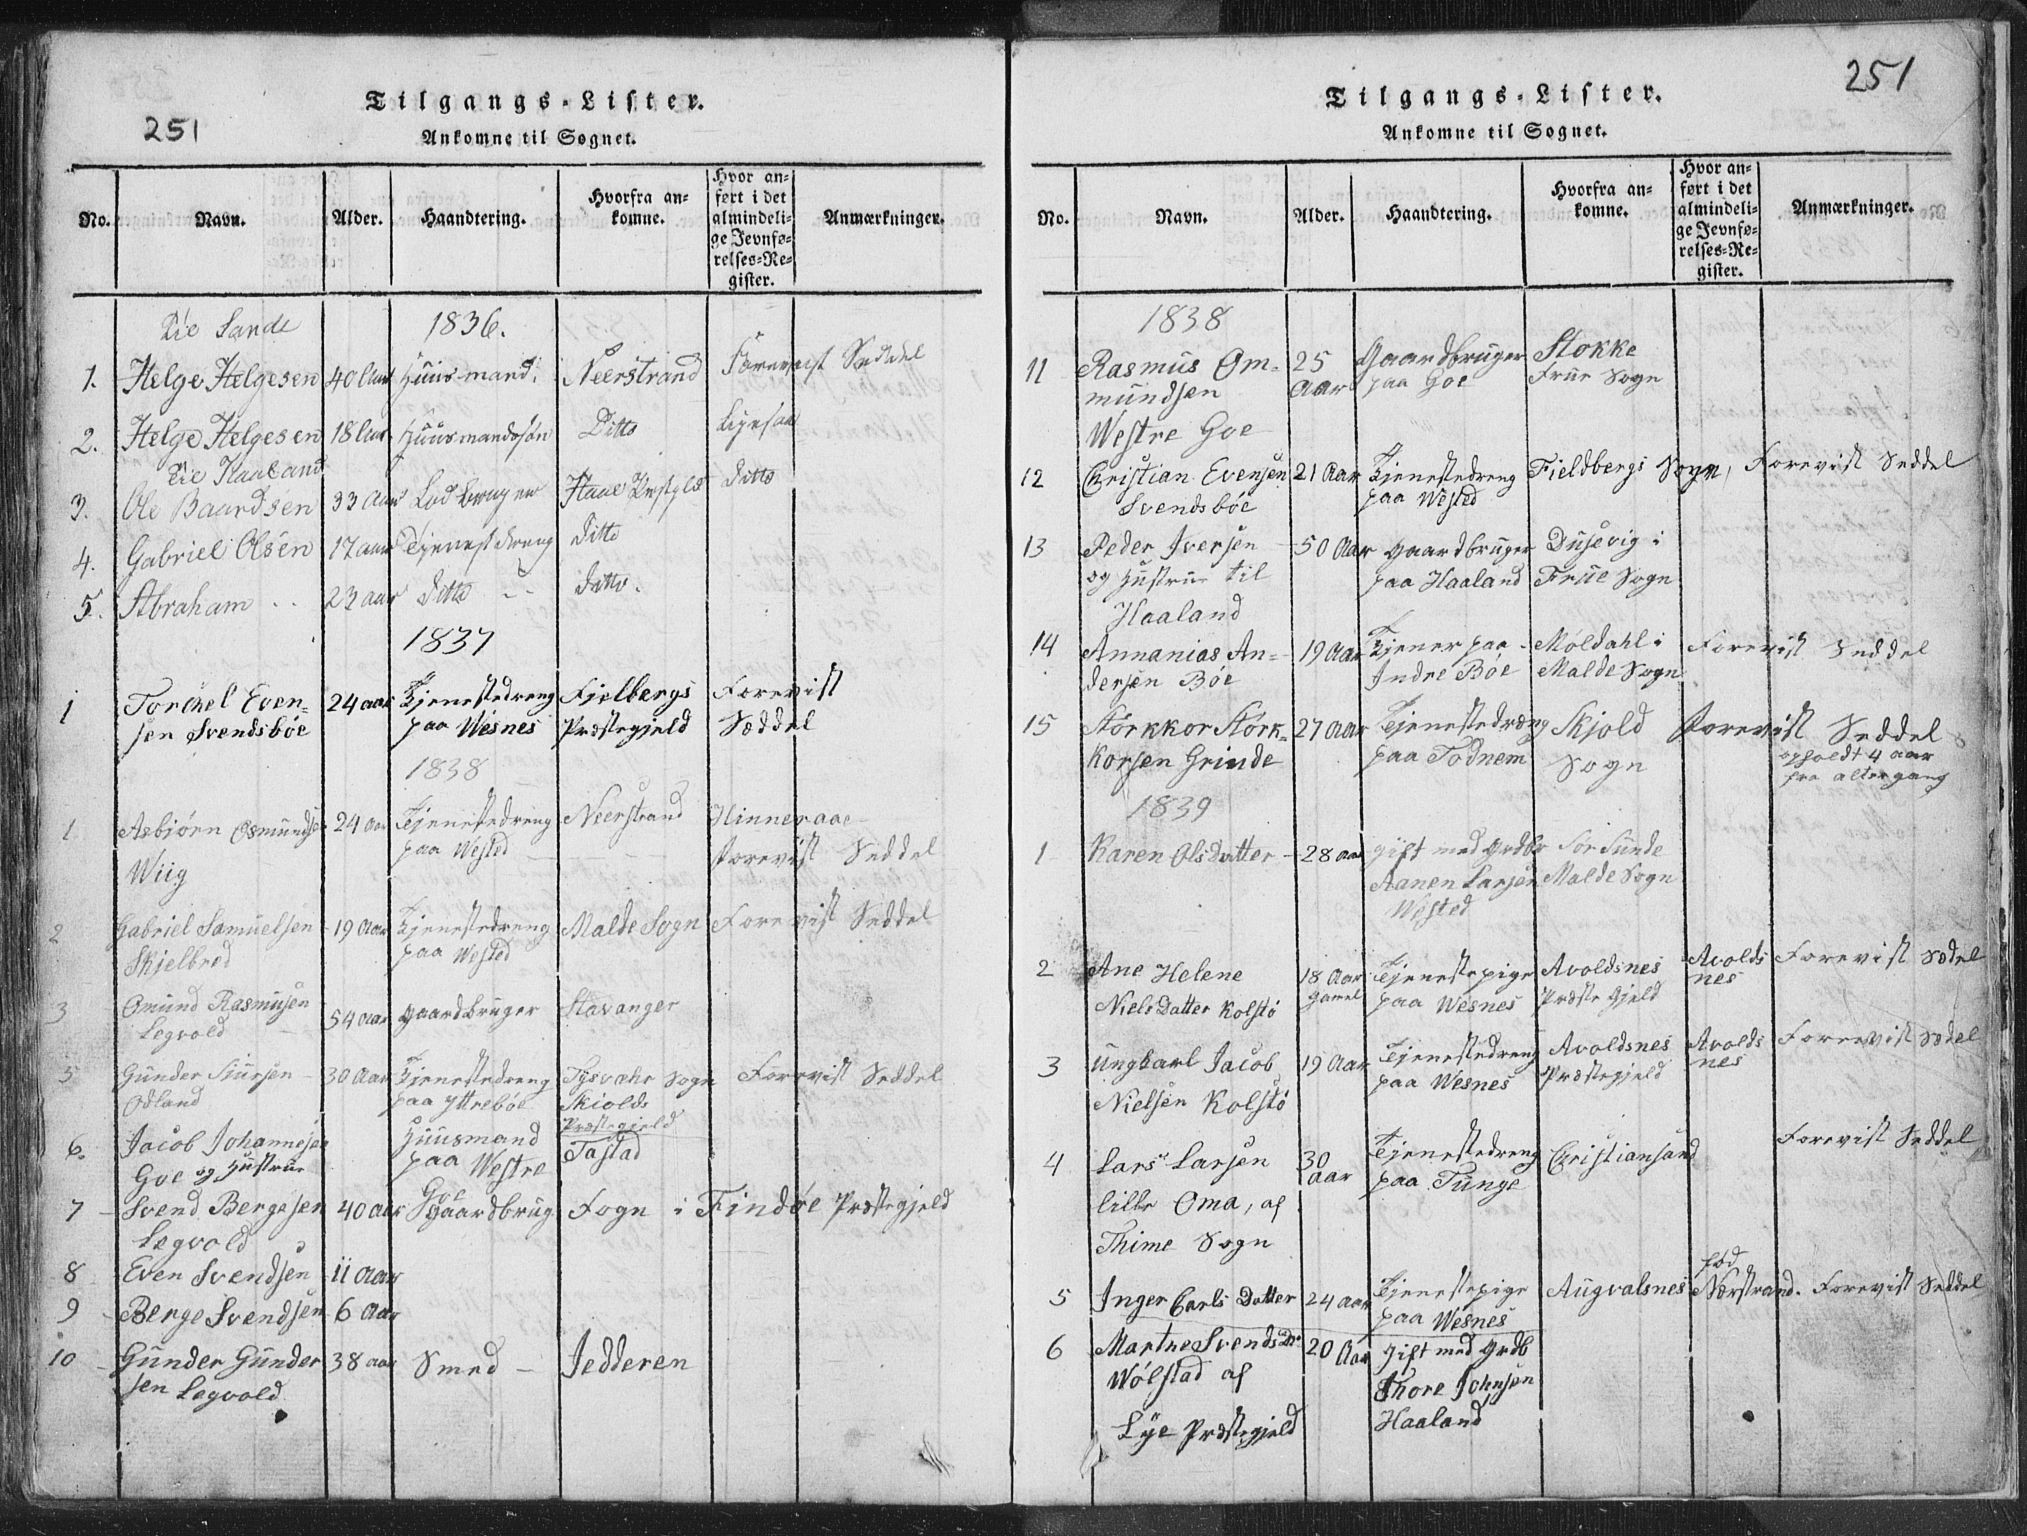 251
Tilgangs-Lister.
Ankomne til Sognet.
No. Navn. Alder. Haandtering. Hvorfra ankomne. Hvor anført i det almindelige Jevnførelses-Register. Anmærkninger.
Sande 1836.
1. Helge Helgesen 40 Aar Huusmand. Neerstrand Forevist Seddel
2. Helge Helgesen 18 Aar Huusmandssøn Ditto Ligesaa
Haaland
3. Ole Baardsen 33 Aar Ditto
4. Gabriel Olsen 17 aar Tjenestdreng Ditto
5. Abraham 23 aar Ditto Ditto.
1837
1 Torchel Even= 24 aar Tjenestedreng Fjelbergs Forevist
sen Svendsbøe paa Wesnes Præstegjeld Seddel
1838
1 Asbjørn Osmundsen 24 aar Tjenestedreng Neerstrand Hinneraae
paa Wested Forevist Seddel
Wiig
2 Gabriel Samuelsen 19 Aar Tjenestedreng Malde Sogn Forevist Seddel
Skjelbred paa Wested
3 Omund Rasmusen 54 Aar gaardbruger Stavanger
Legvold
5 Gunder Siursen 30 Aar Tjenestedreng Tysvæhr Sogn Forevist Seddel
Odland paa Yttrebøe Skiolds
Præstegjeld
6. Jacob Johannesen Huusmand Tastad
Goe og Hustrue paa Westre
Goe
7 Svend Bergesen 40 Aar gaardbrug Fogn i Findøe Præstegjeld
Legvold
8 Even Svendsen 11 Aar
9 Berge Svendsen 6 Aar
10 Gunder Gunder 38 aar Smed Jedderen
sen Legvold
251
Tilgangs-Lister.
Ankomne til Sognet.
No. Navn. Alder. Haandtering. Hvorfra ankomne. Hvor anført i det almindelige Jevnførelses-Register. Anmærkninger.
1838
11 Rasmus Om= 25 Gaardbruger Stokke
mundsen Aar paa Goe Frue Sogn
Westre Goe
12 Christian Evensen 21 Aar Tjenestedreng Fieldbergs Sogn, Forevist Seddel
Svendsbøe paa Wested
13 Peder Iversen 50 Aar gaardbruger Dusevig i
og Hustrue til paa Haaland Frue Sogn
Haaland
14 Annanias An= 19 Aar Tjener paa Møldahl i Forevist Seddel
dersen Bøe Indre Bøe Malde Sogn
15 Størkkor Størk= 27 Aar Tjenestedreng Skjold Forevist Seddel
korsen Grinde paa Todnem Sogn opholdt 4 aar
fra altergang
1839
1 Karen Olsdatter 28 aar gift med grdbr Sør Sunde
Aanen Larsen Malde Sogn
Wested
2 Ane Helene 18 Aar Tjenestepige Avoldsnes Avolds Forevist Sedel
Niels Datter Kolstø gamel paa Wesnes Præste Gjeld nes
3 Ungkarl Jacob 19 Aar Tjenestedreng Avoldsnes Avolds Forevist Sedel
Nielsen Kolstø paa Wesnes Præstegjeld nes
4 Lars Larsen 30 Tjenestedreng Christiansand Forevist Seddel
lille Oma, af aar paa Tunge
Thime Sogn
5 Inger Carls Datter 24 aar Tjenestepige Augvalsnes fød Nærstrand. Forevist Seddel
paa Wesnes
6 Marthe Svends Dr 20 Aar gift med grdb
Wølstad af Thore Johnsen
Lye Præstegjeld Haaland